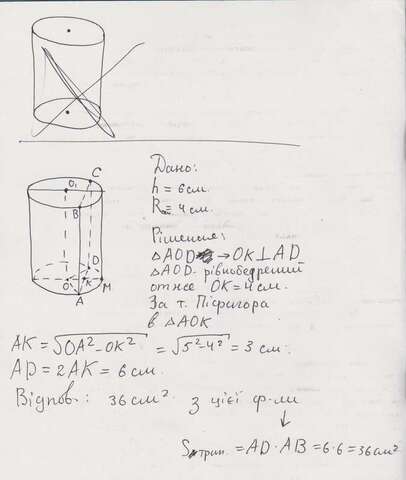 O₁
C
B
D
O
K
M
A
Дано:
h = 6 см.
R = 4 см.
Рішення:
△AOD → OK⊥AD
△AOD - рівнобедрений
отже OK = 4 см.
За т. Піфагора
в △AOK
AK = √OA²-OK² = √5²-4² = 3 см.
AD = 2AK = 6 см.
Відпов.: 36 см² з цієї ф-ли
= AD · AB = 6·6 = 36 см²